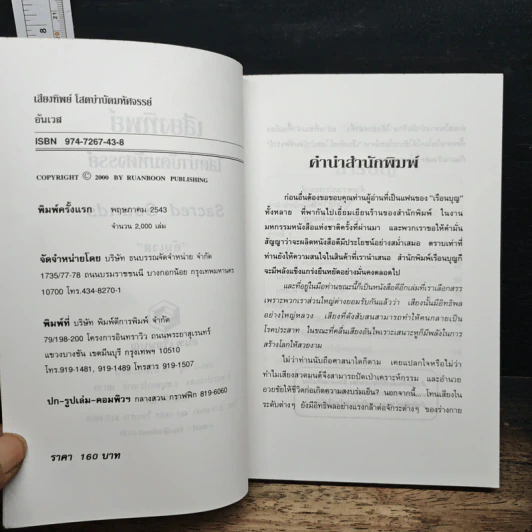 เสียงทิพย์ โสตบำบัดมหัศจรรย์
อันเวส
ISBN 974-7267-43-8
COPYRIGHT © 2000 BY RUANBOON PUBLISHING
พิมพ์ครั้งแรก พฤษภาคม 2543
จำนวน 2,000 เล่ม
จัดจำหน่ายโดย บริษัท ธนบรรณจัดจำหน่าย จำกัด
1735/77-78 ถนนบรมราชชนนี บางกอกน้อย กรุงเทพมหานคร
10700 โทร.434-8270-1
พิมพ์ที่ บริษัท พิมพ์ดีการพิมพ์ จำกัด
79/198-200 โครงการอินทราวิว ถนนพระยาสุเรนทร์
แขวงบางชัน เขตมีนบุรี กรุงเทพฯ 10510
โทร.919-1481, 919-1489 โทรสาร 919-1507
ปก-รูปเล่ม-คอมพิวฯ กลางสวน กราฟฟิก 819-6060
ราคา 160 บาท
คำนำสำนักพิมพ์
ก่อนอื่นต้องขอขอบคุณท่านผู้อ่านที่เป็นแฟนของ "เรือนบุญ"
ทั้งหลาย ที่พากันไปเยี่ยมเยียนร้านของสำนักพิมพ์ ในงาน
มหกรรมหนังสือแห่งชาติครั้งที่ผ่านมา และพวกเราขอให้คำมั่น
สัญญาว่าจะผลิตหนังสือดีมีประโยชน์อย่างสม่ำเสมอ ตราบเท่าที่
ท่านยังให้ความสนใจในสินค้าที่เรานำเสนอ สำนักพิมพ์เรือนบุญก็
จะมีพลังแข็งแกร่งยืนหยัดอย่างมั่นคงตลอดไป
และที่อยู่ในมือท่านขณะนี้ก็เป็นหนังสือดีอีกเล่มที่เราเลือกสรร
เพราะพวกเราส่วนใหญ่ต่างยอมรับกันแล้วว่า เสียงนั้นมีอิทธิพล
อย่างใหญ่หลวง เสียงที่ดังสับสนสามารถทำให้คนกลายเป็น
โรคประสาท ในขณะที่คลื่นเสียงอันไพเราะเสนาะหูก็มีพลังในการ
สร้างโลกให้สวยงาม
ไม่ว่าท่านนับถือศาสนาใดก็ตาม เคยแปลกใจหรือไม่ว่า
ทำไมเสียงสวดมนต์จึงสามารถปัดเป่าเคราะห์กรรม และอำนวย
อวยชัยให้ชีวิตก่อเกิดความสงบร่มเย็น? นอกจากนี้... โทนเสียงใน
ระดับต่างๆ ยังมีอิทธิพลอย่างแรงกล้าต่อจักระต่างๆ ของร่างกาย